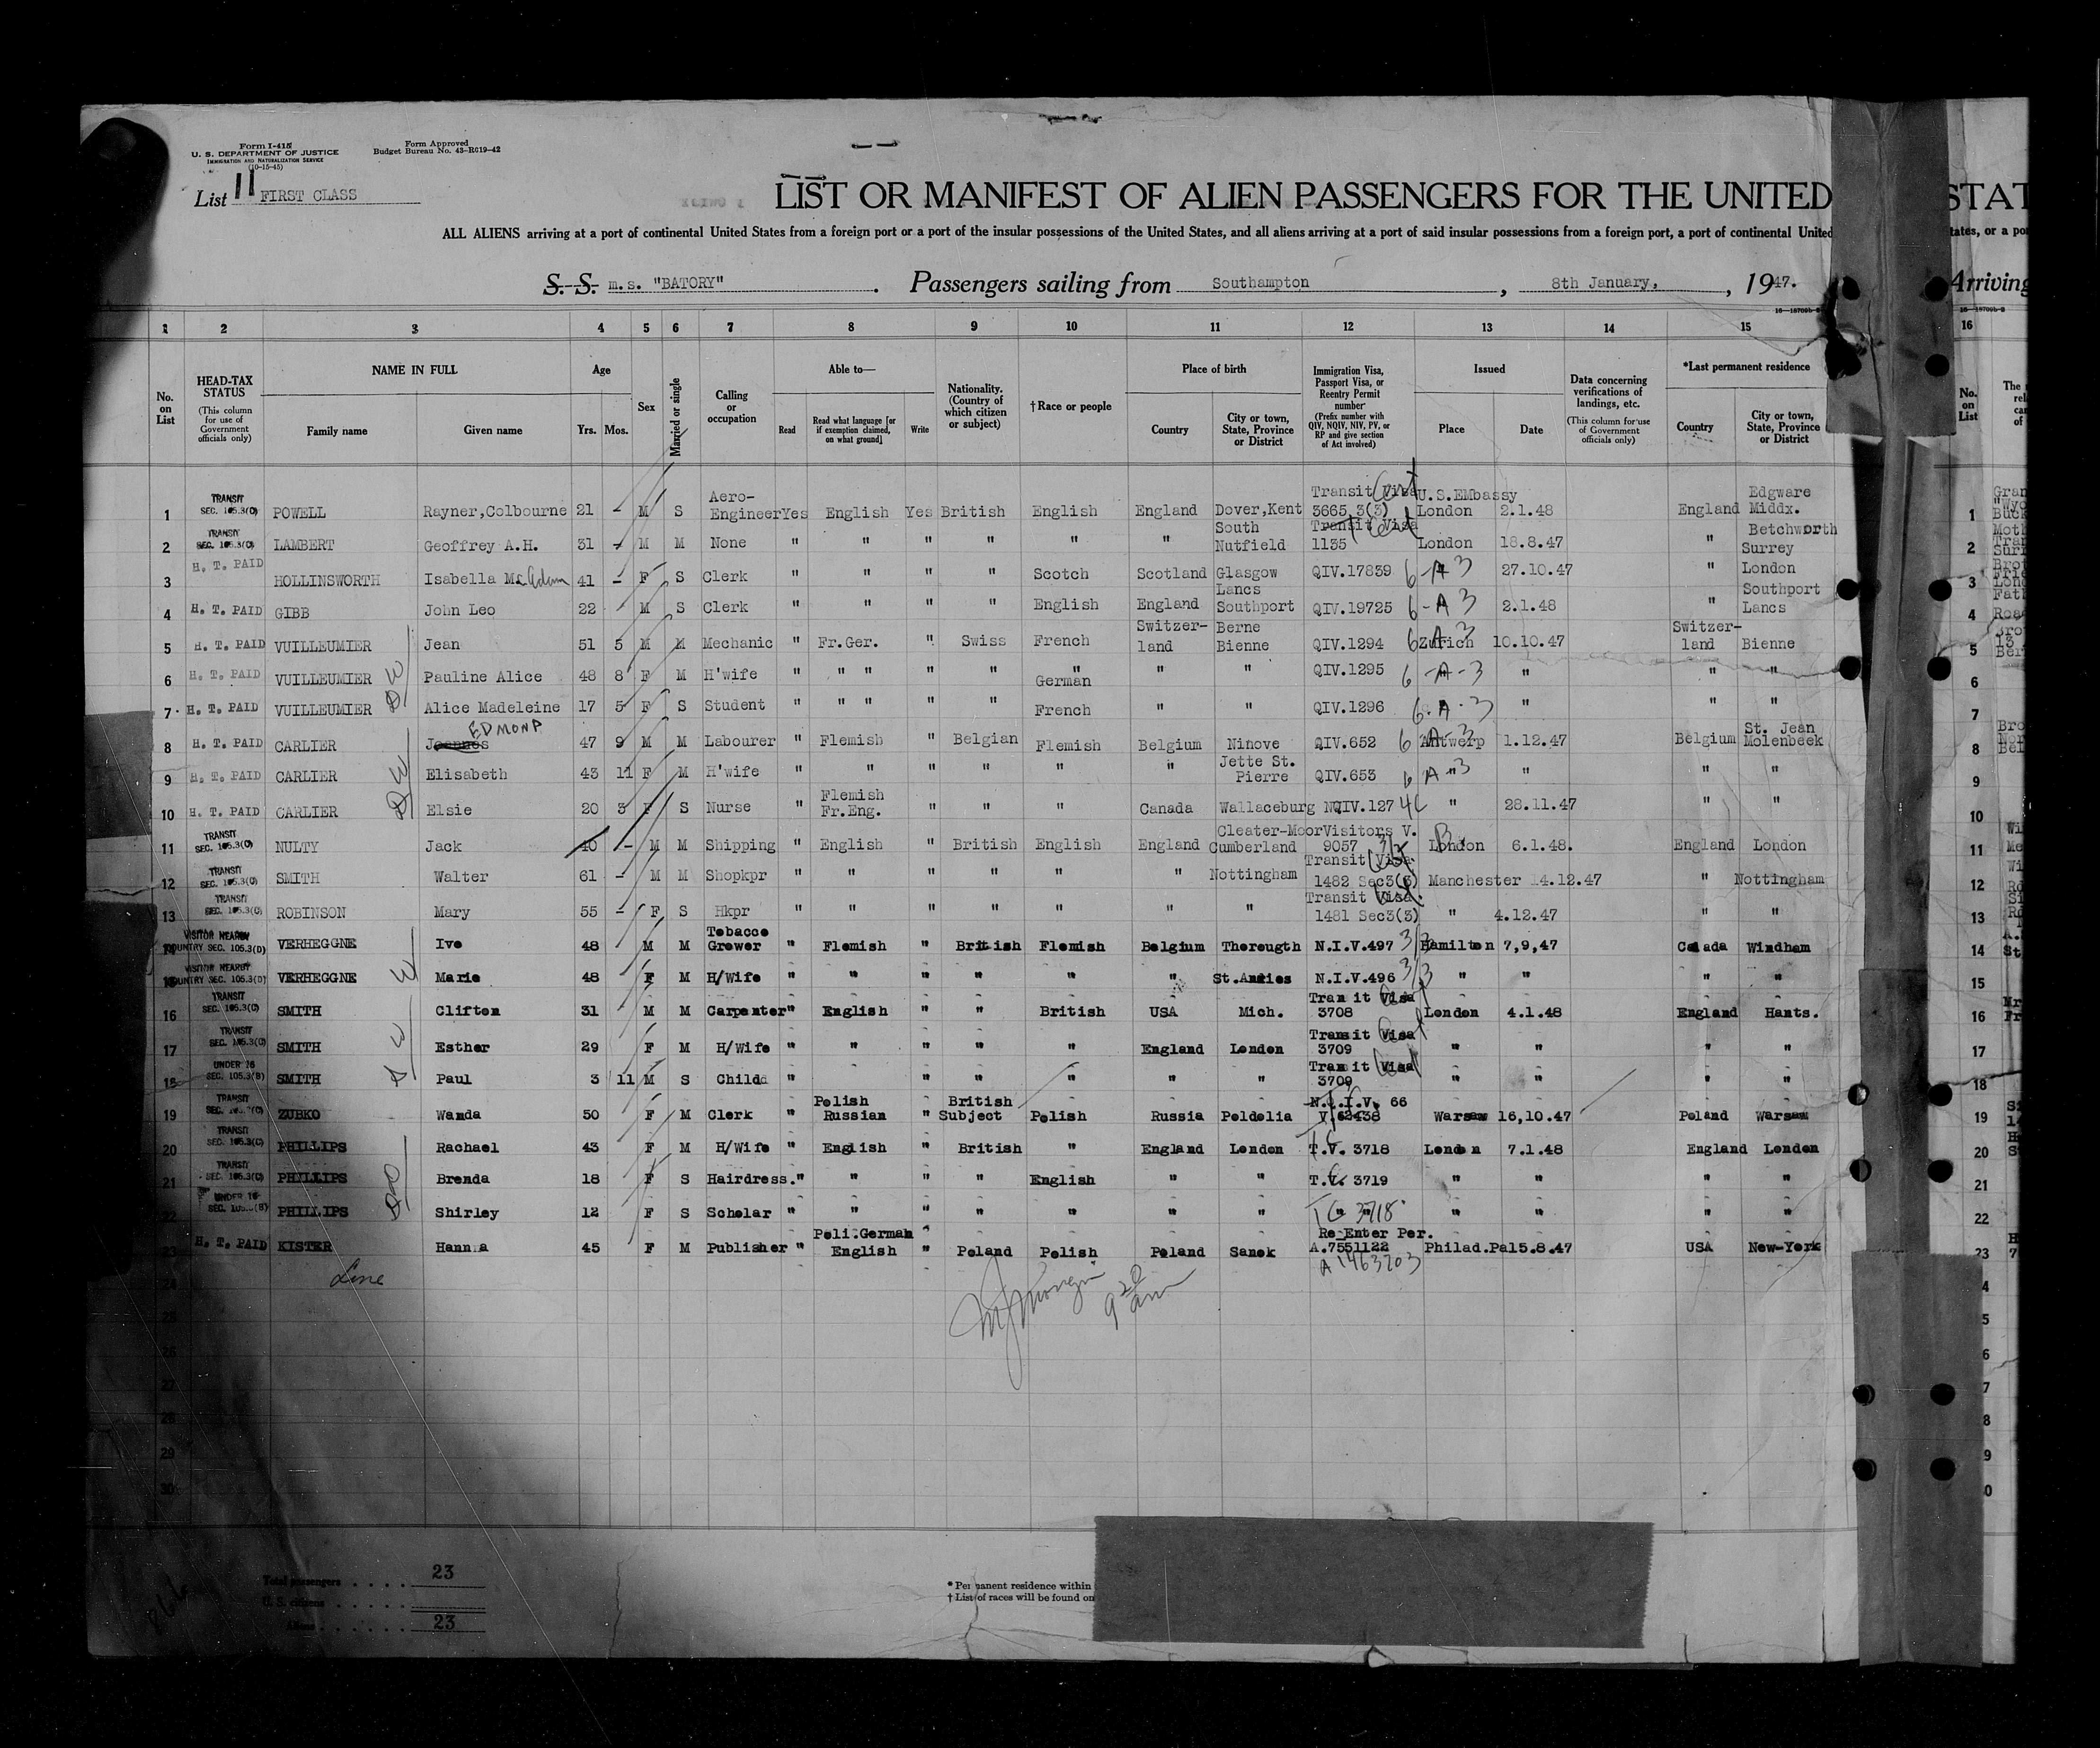 Form I-415
U. S. DEPARTMENT OF JUSTICE
IMMIGRATION AND NATURALIZATION SERVICE
(10-15-45)
Form Approved
Budget Bureau No. 43-R019-42
List 11 FIRST CLASS
LIST OR MANIFEST OF ALIEN PASSENGERS FOR THE UNITED STAT
ALL ALIENS arriving at a port of continental United States from a foreign port or a port of the insular possessions of the United States, and all aliens arriving at a port of said insular possessions from a foreign port, a port of continental United tates, or a po
S. S. m.s. "BATORY" . Passengers sailing from Southampton , 8th January, , 1947. Arriving
1 2 3 4 5 6 7 8 9 10 11 12 13 14 15 16
No. on List
HEAD-TAX STATUS (This column for use of Government officials only)
NAME IN FULL Family name Given name
Age Yrs. Mos.
Sex
Married or single
Calling or occupation
Able to— Read Read what language [or if exemption claimed, on what ground] Write
Nationality. (Country of which citizen or subject)
†Race or people
Place of birth Country City or town, State, Province or District
Immigration Visa, Passport Visa, or Reentry Permit number (Prefix number with QIV, NQIV, NIV, PV, or RP and give section of Act involved)
Issued Place Date
Data concerning verifications of landings, etc. (This column for use of Government officials only)
*Last permanent residence Country City or town, State, Province or District
No. on List
1 TRANSIT SEC. 105.3(C) POWELL Rayner,Colbourne 21 - M S Aero-Engineer Yes English Yes British English England Dover,Kent Transit Visa 3665 3(3) U.S.EMbassy London 2.1.48 England Edgware Middx. 1
2 TRANSIT SEC. 105.3(C) LAMBERT Geoffrey A.H. 31 - M M None " " " " " " South Nutfield Transit Visa 1135 London 18.8.47 " Betchworth Surrey 2
3 H. T. PAID HOLLINSWORTH Isabella McAdam 41 - F S Clerk " " " " Scotch Scotland Glasgow QIV.17839 6-A3 27.10.47 " London 3
4 H. T. PAID GIBB John Leo 22 M S Clerk " " " " English England Lancs Southport QIV.19725 6-A 3 2.1.48 " Southport Lancs 4
5 H. T. PAID VUILLEUMIER Jean 51 5 M M Mechanic " Fr.Ger. " Swiss French Switzer-land Berne Bienne QIV.1294 6 A 3 Zurich 10.10.47 Switzer-land Bienne 5
6 H. T. PAID VUILLEUMIER Pauline Alice 48 8 F M H'wife " " " " " " German " " QIV.1295 6-A-3 " " " 6
7 H. T. PAID VUILLEUMIER Alice Madeleine 17 5 F S Student " " " " " French " " QIV.1296 6.A-3 " " " 7
8 H. T. PAID CARLIER Joannes EDMOND 47 9 M M Labourer " Flemish " Belgian Flemish Belgium Ninove QIV.652 6 A-3 Antwerp 1.12.47 Belgium St. Jean Molenbeek 8
9 H. T. PAID CARLIER Elisabeth 43 11 F M H'wife " " " " " " Jette St. Pierre QIV.653 6 A 3 " " " " 9
10 H. T. PAID CARLIER Elsie 20 3 F S Nurse " Flemish Fr.Eng. " " " Canada Wallaceburg NQIV.127 4C " 28.11.47 " " 10
11 TRANSIT SEC. 105.3(C) NULTY Jack 40 - M M Shipping " English " British English England Cleater-Moor Cumberland Visitors V. 9057 London 6.1.48. England London 11
12 TRANSIT SEC. 105.3(C) SMITH Walter 61 - M M Shopkpr " " " " " " Nottingham Transit Visa 1482 Sec3(3) Manchester 14.12.47 " Nottingham 12
13 TRANSIT SEC. 105.3(C) ROBINSON Mary 55 - F S Hkpr " " " " " " " Transit Visa 1481 Sec3(3) " 4.12.47 " " 13
14 VISITOR NEARBY COUNTRY SEC. 105.3(D) VERHEGGNE Ivo 48 M M Tobacco Grower " Flemish " British Flemish Belgium Thereugth N.I.V.497 3/3 Hamilton 7,9,47 Canada Windham 14
15 VISITOR NEARBY COUNTRY SEC. 105.3(D) VERHEGGNE Marie 48 F M H/Wife " " " " " " St.Andies N.I.V.496 3/3 " " " " 15
16 TRANSIT SEC. 105.3(C) SMITH Clifton 31 M M Carpenter " English " " British USA Mich. Transit Visa 3708 London 4.1.48 England Hants. 16
17 TRANSIT SEC. 105.3(C) SMITH Esther 29 F M H/Wife " " " " " England London Transit Visa 3709 " " " " 17
18 UNDER 16 SEC. 105.3(B) SMITH Paul 3 11 M S Child " " " " " " Transit Visa 3709 " " " " 18
19 TRANSIT ZUBKO Wanda 50 F M Clerk " Polish Russian " British Subject Polish Russia Podolia N.I.V. 66 V.62438 Warsaw 16,10.47 Poland Warsaw 19
20 TRANSIT SEC. 105.3(C) PHILLIPS Rachael 43 F M H/Wife " English " British " England London T.V. 3718 London 7.1.48 England London 20
21 TRANSIT SEC. 105.3(C) PHILLIPS Brenda 18 F S Hairdress. " " " " English " " T.V. 3719 " " " " 21
22 UNDER 16 PHILLIPS Shirley 12 F S Scholar " " " " " " " " " TC 3718 " " " " 22
23 H. T. PAID KISTER Hanna 45 F M Publisher " Poli.German English " Poland Polish Poland Sanok Re_Enter Per. A.7551122 A1463203 Philad.Pa 15.8.47 USA New-York 23
24 Line
25
26
27
28
29
30
9 20 am
Total passengers . . . . 23
U. S. citizens . . . . .
Aliens . . . . . . 23
* Permanent residence within
† List of races will be found on